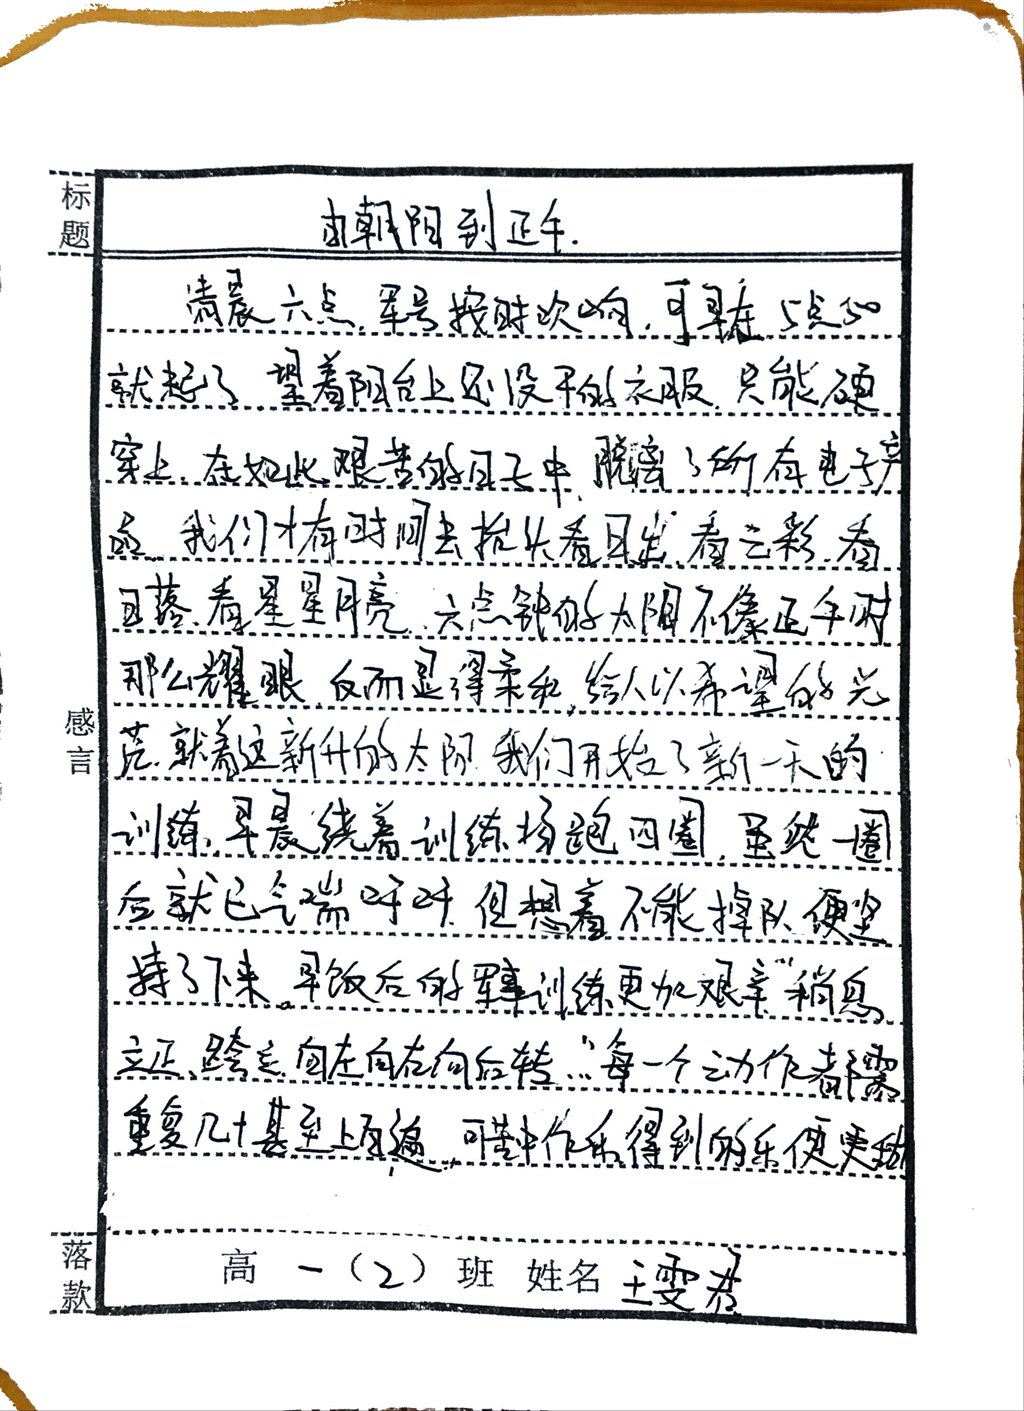 标题
由朝阳到正午.
清晨六点,军号按时吹响,可早在5点50
就起了,望着阳台上还没干的衣服,只能硬
穿上,在如此艰苦的日子中,脱离了所有电子产
品,我们才有时间去抬头看日出,看云彩,看
日落,看星星月亮,六点钟的太阳不像正午时
那么耀眼,反而显得柔和,给人以希望的光
芒,就着这新升的太阳,我们开始了新一天的
训练,早晨绕着训练场跑四圈,虽然一圈
后就已气喘吁吁,但想着不能掉队,便坚
持了下来。早饭后的军事训练更加艰辛"稍息
立正、跨立、向左向右向后转",每一个动作都需
重复几十甚至上百遍,可苦中作乐得到的乐便更甜
感言
落款
高一(2)班 姓名 王雯君